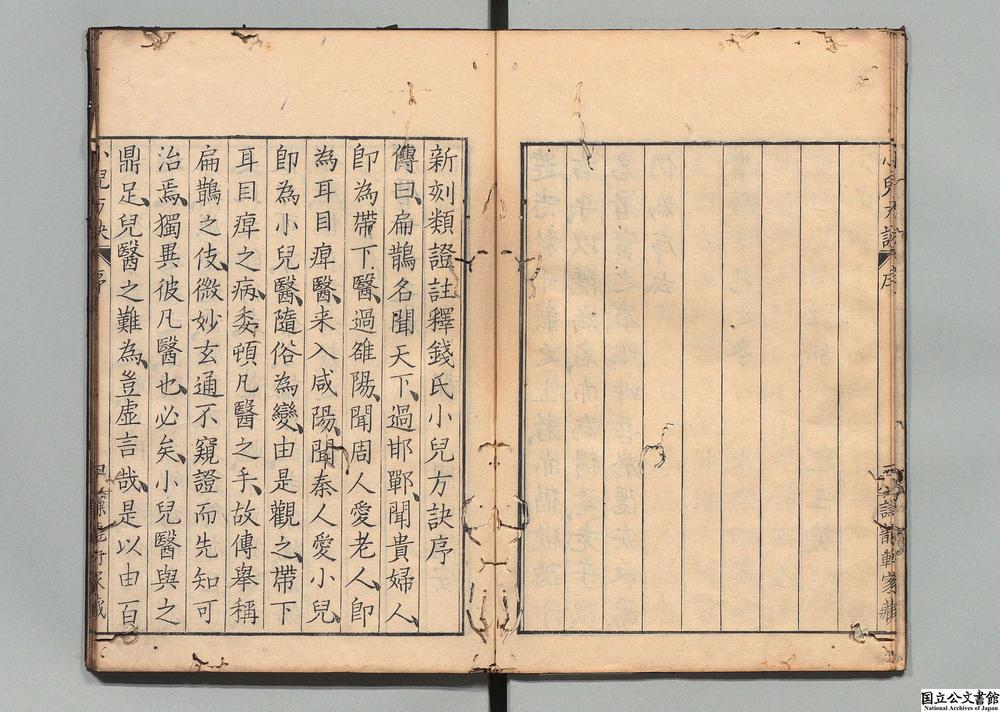 新刻類證註釋錢氏小兒方訣序
傳曰扁鵲名聞天下過邯鄲聞貴婦人
即為帶下醫過雒陽聞周人愛老人即
為耳目痺醫来入咸陽聞秦人愛小兒
即為小兒醫隨俗為變由是觀之帶下
耳目痺之病委頓凡醫之手故傳舉稱
扁鵲之伎微妙玄通不窺證而先知可
治焉獨異彼凡醫也必矣小兒醫與之
鼎足兒醫之難為豈虛言哉是以由百
小兒方訣
序
国立公文書館
National Archives of Japan